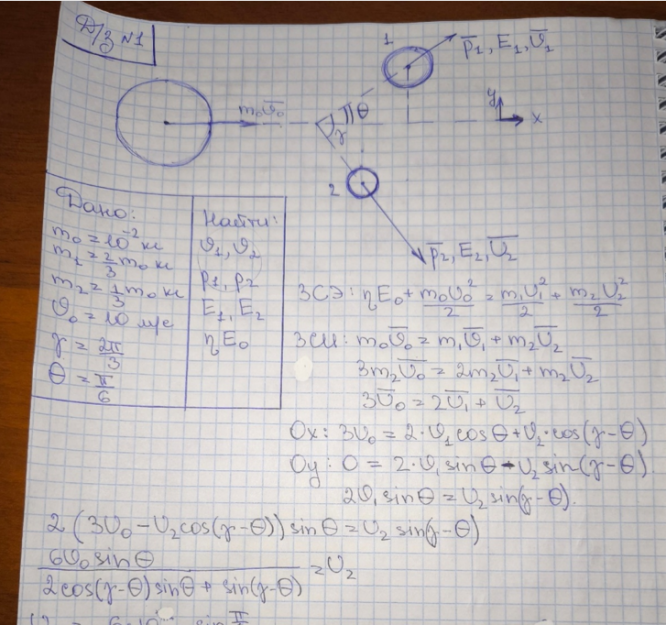 Д/з №1
1
p̅₁, E₁, υ̅₁
m₀υ̅₀
γ
θ
y
x
2
p̅₂, E₂, υ̅₂
Дано:
m₀ = 10⁻² кг
m₁ = 2/3 m₀ кг
m₂ = 1/3 m₀ кг
υ₀ = 10 м/с
γ = 2π/3
θ = π/6
Найти:
υ₁, υ₂
p₁, p₂
E₁, E₂
ηE₀
ЗСЭ: ηE₀ + m₀υ₀²/2 = m₁υ₁²/2 + m₂υ₂²/2
ЗСИ: m₀υ̅₀ = m₁υ̅₁ + m₂υ̅₂
3m₂υ̅₀ = 2m₂υ̅₁ + m₂υ̅₂
3υ̅₀ = 2υ̅₁ + υ̅₂
Ox: 3υ₀ = 2·υ₁cosθ + υ₂·cos(γ-θ)
Oy: 0 = 2·υ₁sinθ - υ₂sin(γ-θ)
2υ₁sinθ = υ₂sin(γ-θ).
2(3υ₀ - υ₂cos(γ-θ))sinθ = υ₂sin(γ-θ)
6υ₀sinθ / 2cos(γ-θ)sinθ + sin(γ-θ) = υ₂